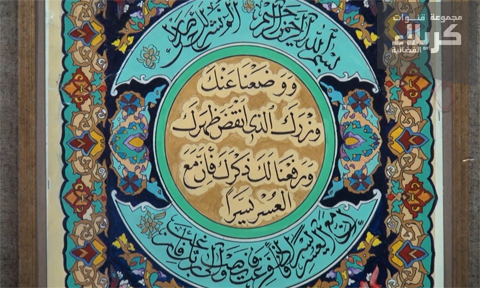 مجموعة قنوات
كربلاء
الفضائية
بسم الله الرحمن الرحيم الم نشرح لك صدرك
ووضعنا عنك
وزرك الذي انقض ظهرك
ورفعنا لك ذكرك فإن مع
العسر يسرا
ان مع العسر يسرا فاذا فرغت فانصب والى ربك